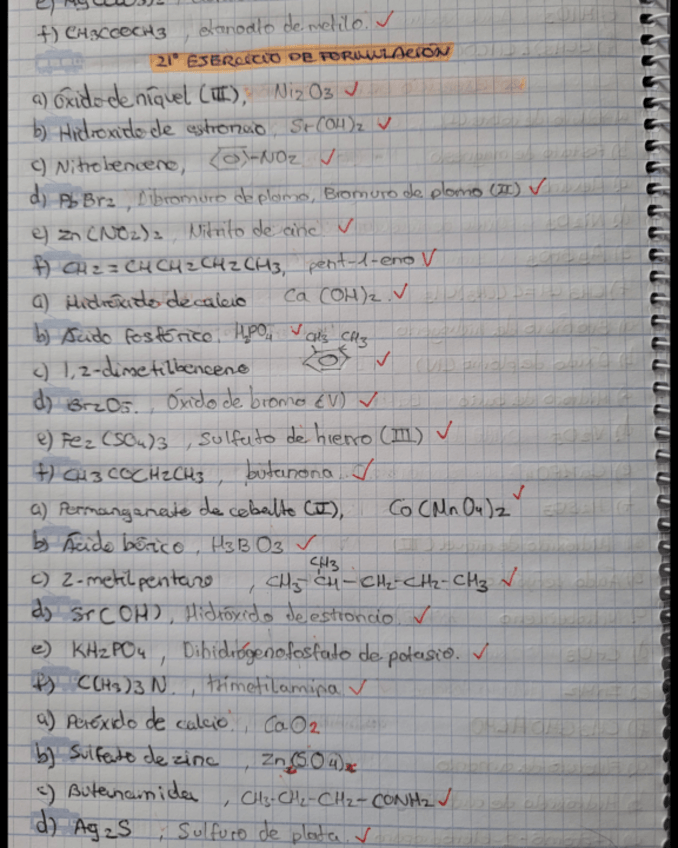 f) CH3COOCH3, etanoato de metilo. ✓
21º EJERCICIO DE FORMULACIÓN
a) óxido de níquel (III), Ni2O3 ✓
b) Hidróxido de estroncio, Sr(OH)2 ✓
c) Nitrobenceno, -NO2 ✓
d) PbBr2, Dibromuro de plomo, Bromuro de plomo (II) ✓
e) Zn(NO2)2, Nitrito de cinc ✓
f) CH2=CHCH2CH2CH3, pent-1-eno ✓
a) Hidróxido de calcio Ca(OH)2. ✓
b) Ácido fosfórico. H3PO4 ✓
CH3 CH3
c) 1,2-dimetilbenceno ✓
d) Br2O5., Óxido de bromo (V) ✓
e) Fe2(SO4)3, sulfato de hierro (III) ✓
f) CH3COCH2CH3, butanona. ✓
a) Permanganato de cobalto (II), Co(MnO4)2 ✓
b) Ácido bórico, H3BO3 ✓
CH3
c) 2-metilpentano, CH3-CH-CH2-CH2-CH3 ✓
d) Sr(OH), Hidróxido de estroncio. ✓
e) KH2PO4, Dihidrógenofosfato de potasio. ✓
f) C(H3)3N., trimetilamina ✓
a) Peróxido de calcio., CaO2
b) Sulfato de zinc, Zn(SO4)
c) Butanamida, CH3-CH2-CH2-CONH2 ✓
d) Ag2S, Sulfuro de plata. ✓